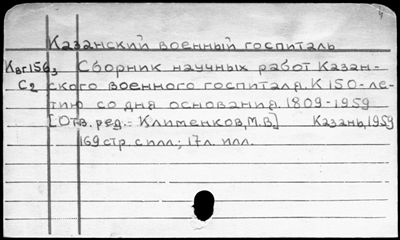 Казанский военный госпиталь
Квг1563 Сборник научных работ Казан-
С2 ского военного госпиталя. К 150-ле-
тию со дня основания. 1809-1959
[Отв. ред.: Клименков, М.В.] Казань, 1959
169 стр. с илл.; 17 л. илл.